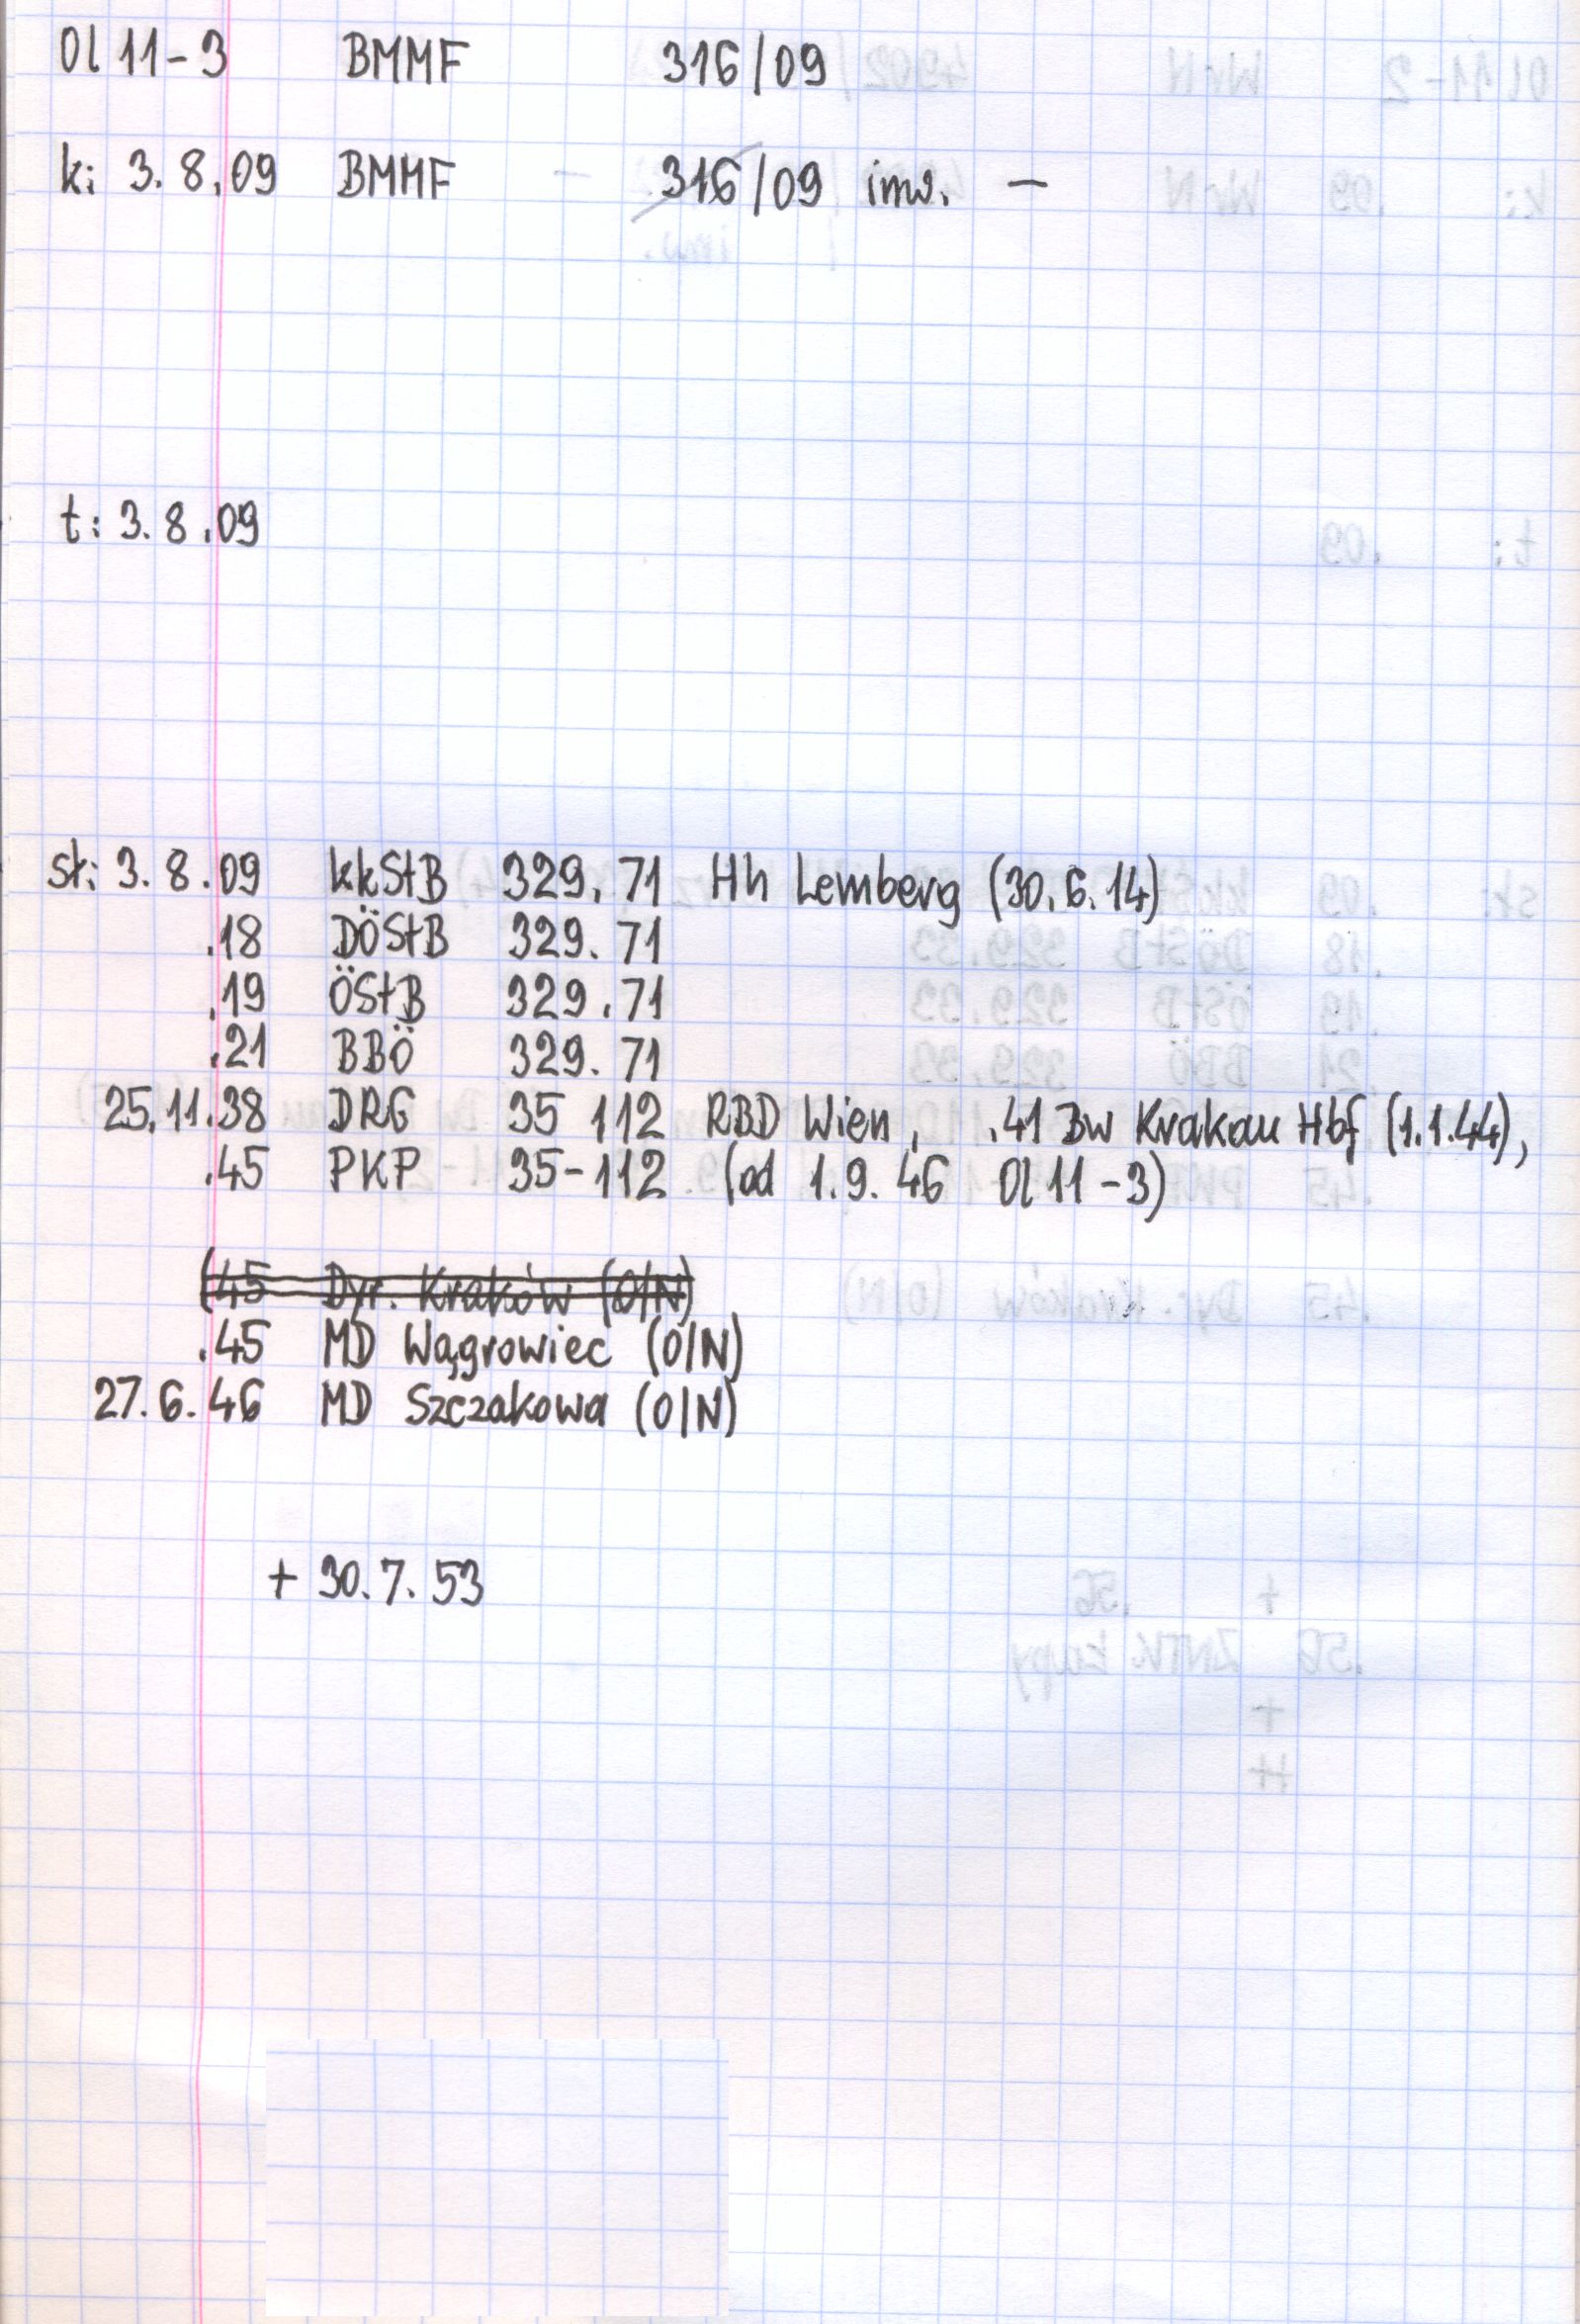 Ol 11-3 BMMF 316/09
k: 3.8.09 BMMF 316/09 inw. -
t: 3.8.09
st: 3.8.09 kkStB 329.71 Hh Lemberg (30.6.14)
.18 DÖStB 329.71
.19 ÖStB 329.71
.21 BBÖ 329.71
25.11.38 DRG 35 112 RBD Wien, .41 Bw Krakau Hbf (1.1.44),
.45 PKP 35-112 (od 1.9.46 Ol 11-3)
(45 Dyr. Kraków (O/N)
.45 MD Wągrowiec (O/N)
27.6.46 MD Szczakowa (O/N)
+ 30.7.53